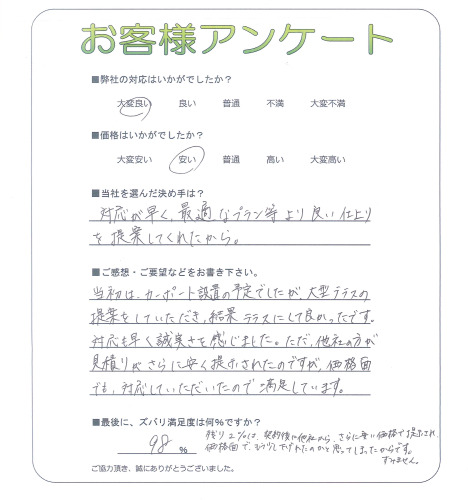 お客様アンケート
■弊社の対応はいかがでしたか？
大変良い 良い 普通 不満 大変不満
■価格はいかがでしたか？
大変安い 安い 普通 高い 大変高い
■当社を選んだ決め手は？
対応が早く、最適なプラン等より良い仕上り
を提案してくれたから。
■ご感想・ご要望などをお書き下さい。
当初は、カーポート設置の予定でしたが、大型テラスの
提案をしていただき、結果テラスにして良かったです。
対応も早く誠実さを感じました。ただ、他社の方が
見積りがさらに安く提示されたのですが、価格面
でも、対応していただいたので満足しています。
■最後に、ズバリ満足度は何％ですか？
98 ％
残り2％は、契約後に他社から、さらに安い価格で提示され、
価格面で、もう少し下げれたのかと思ってしまったからです。
すみません。
ご協力頂き、誠にありがとうございました。